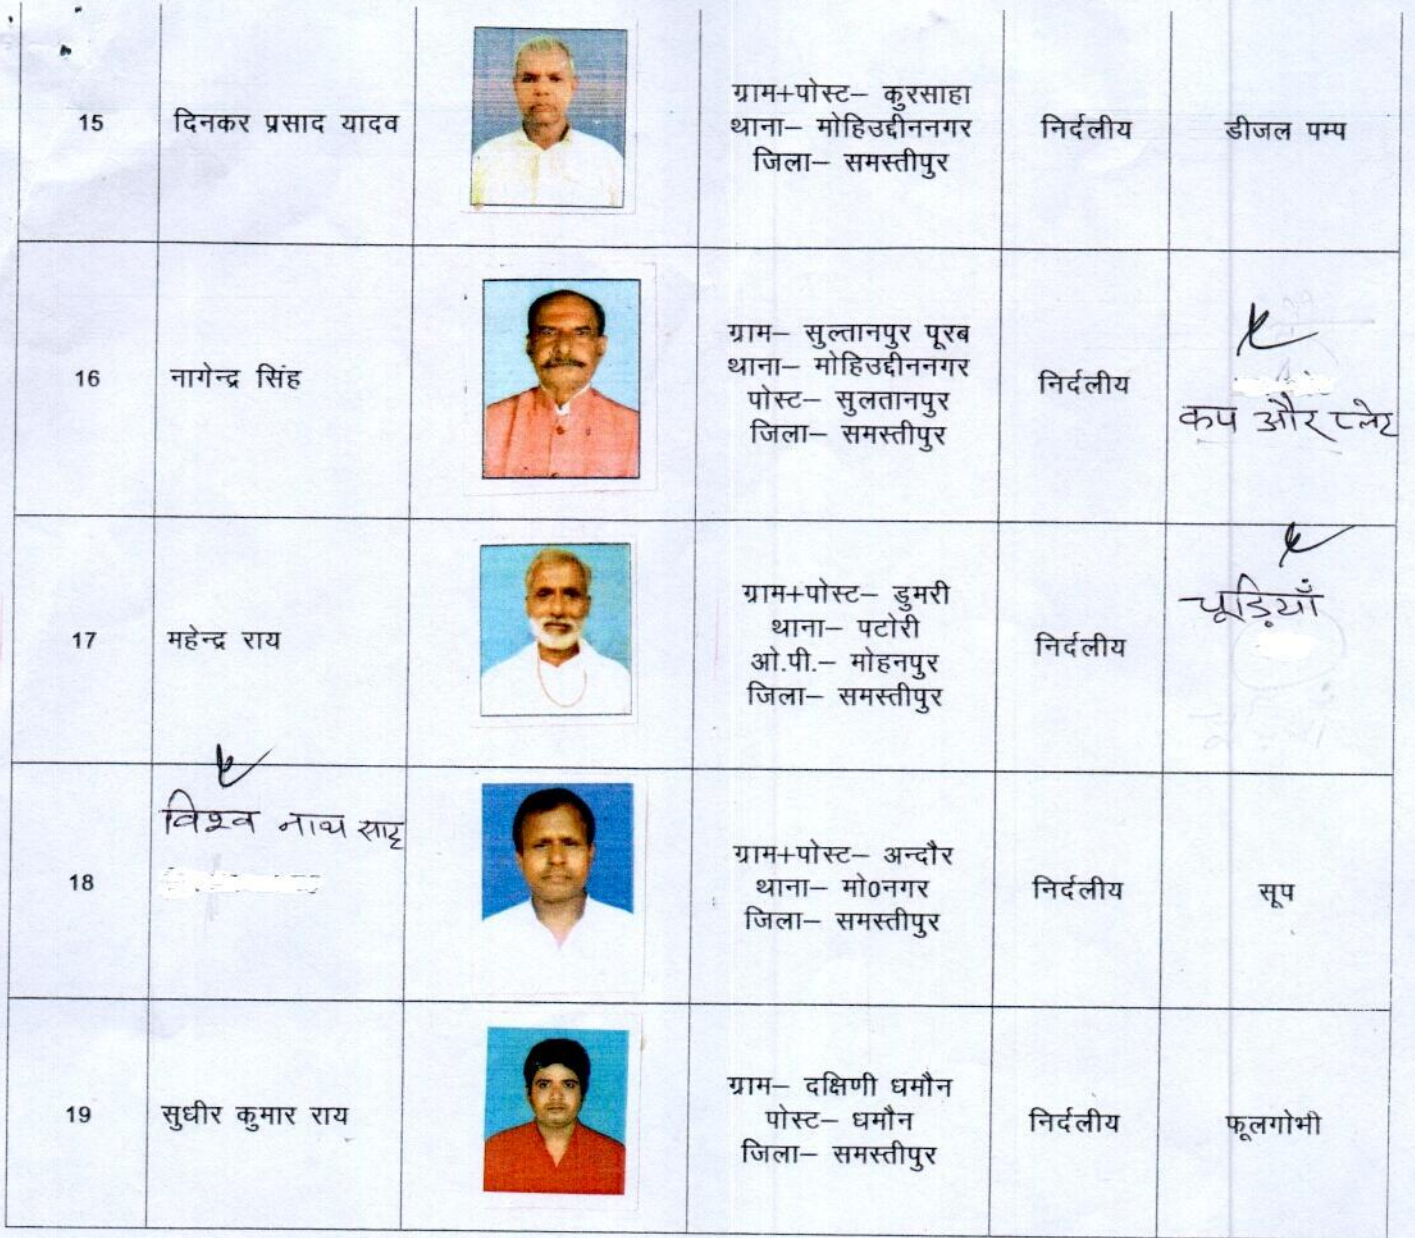 15
दिनकर प्रसाद यादव
ग्राम+पोस्ट– कुरसाहा
थाना– मोहिउद्दीननगर
जिला– समस्तीपुर
निर्दलीय
डीजल पम्प
16
नागेन्द्र सिंह
ग्राम– सुल्तानपुर पूरब
थाना– मोहिउद्दीननगर
पोस्ट– सुलतानपुर
जिला– समस्तीपुर
निर्दलीय
कप और प्लेट
17
महेन्द्र राय
ग्राम+पोस्ट– डुमरी
थाना– पटोरी
ओ.पी.– मोहनपुर
जिला– समस्तीपुर
निर्दलीय
चूड़ियाँ
18
विश्व नाथ साह
ग्राम+पोस्ट– अन्दौर
थाना– मो0नगर
जिला– समस्तीपुर
निर्दलीय
सूप
19
सुधीर कुमार राय
ग्राम– दक्षिणी धमौन
पोस्ट– धमौन
जिला– समस्तीपुर
निर्दलीय
फूलगोभी